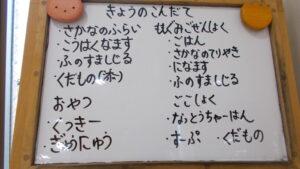 きょうのこんだて
・さかなのふらい
・こうはくなます
・ふのすましじる
・くだもの
おやつ
・くっきー
・ぎゅうにゅう
ごはん
・さかなのてりやき
・になます
・ふのすましじる
ごごしょく
・なっとうちゃーはん
・すーぷ ・くだもの